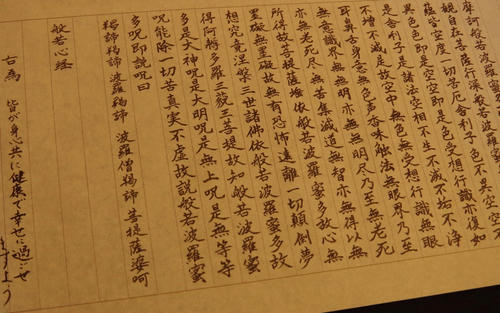 摩訶般若波羅蜜
観自在菩薩行深般若波羅
蘊皆空度一切苦厄舎利子色不異空
異色色即是空空即是色受想行識亦復如
是舎利子是諸法空相不生不滅不垢不浄
不増不減是故空中無色無受想行識無眼
耳鼻舌身意無色声香味触法無眼界乃至
無意識界無無明亦無無明尽乃至無老死
亦無老死尽無苦集滅道無智亦無得以無
所得故菩提薩埵依般若波羅蜜多故心無
罣礙無罣礙故無有恐怖遠離一切顛倒夢
想究竟涅槃三世諸佛依般若波羅蜜多故
得阿耨多羅三藐三菩提故知般若波羅蜜
多是大神呪是大明呪是無上呪是無等等
呪能除一切苦真実不虚故説般若波羅蜜
多呪即説呪曰
羯諦羯諦 波羅羯諦 波羅僧羯諦 菩提薩婆呵
般若心経
右為 皆が身心共に健康で幸せに過ごせ
ますよう